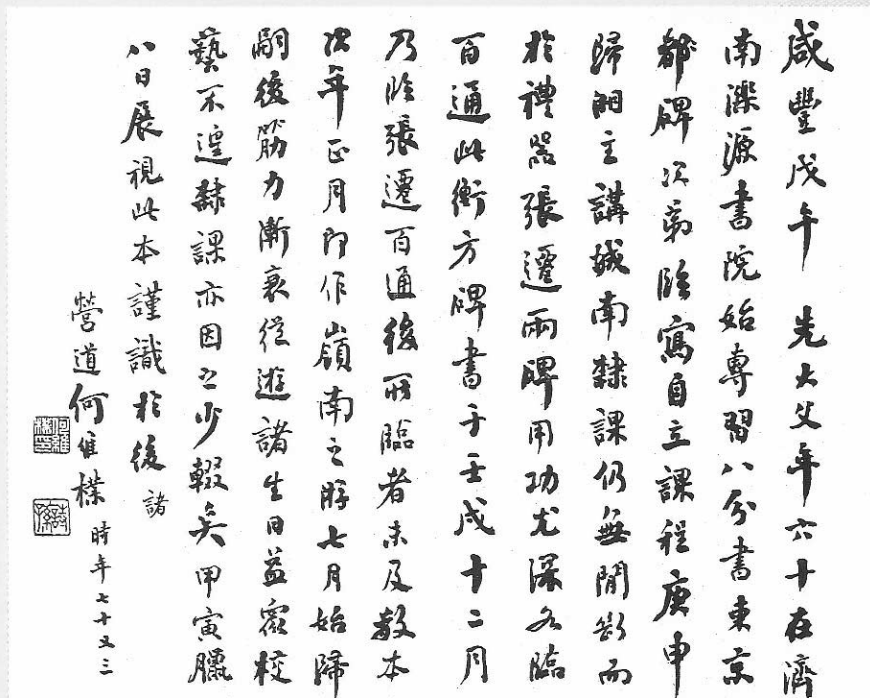 咸豐戊午　先大父年六十在濟
南濼源書院始專習八分書東京
都碑次第臨寫自立課程庚申
歸湘主講城南隸課仍無間斷而
於禮器張遷兩碑用功尤深各臨
百通此衡方碑書于壬戌十二月
乃臨張遷百通後所臨者未及數本
次年正月即作嶺南之游七月始歸
嗣後筋力漸衰從游諸生日益眾校
藝不遑隸課亦因之少輟矣甲寅臘
八日展視此本謹識於後 諸
營道何維樸 時年七十又三
何維樸印